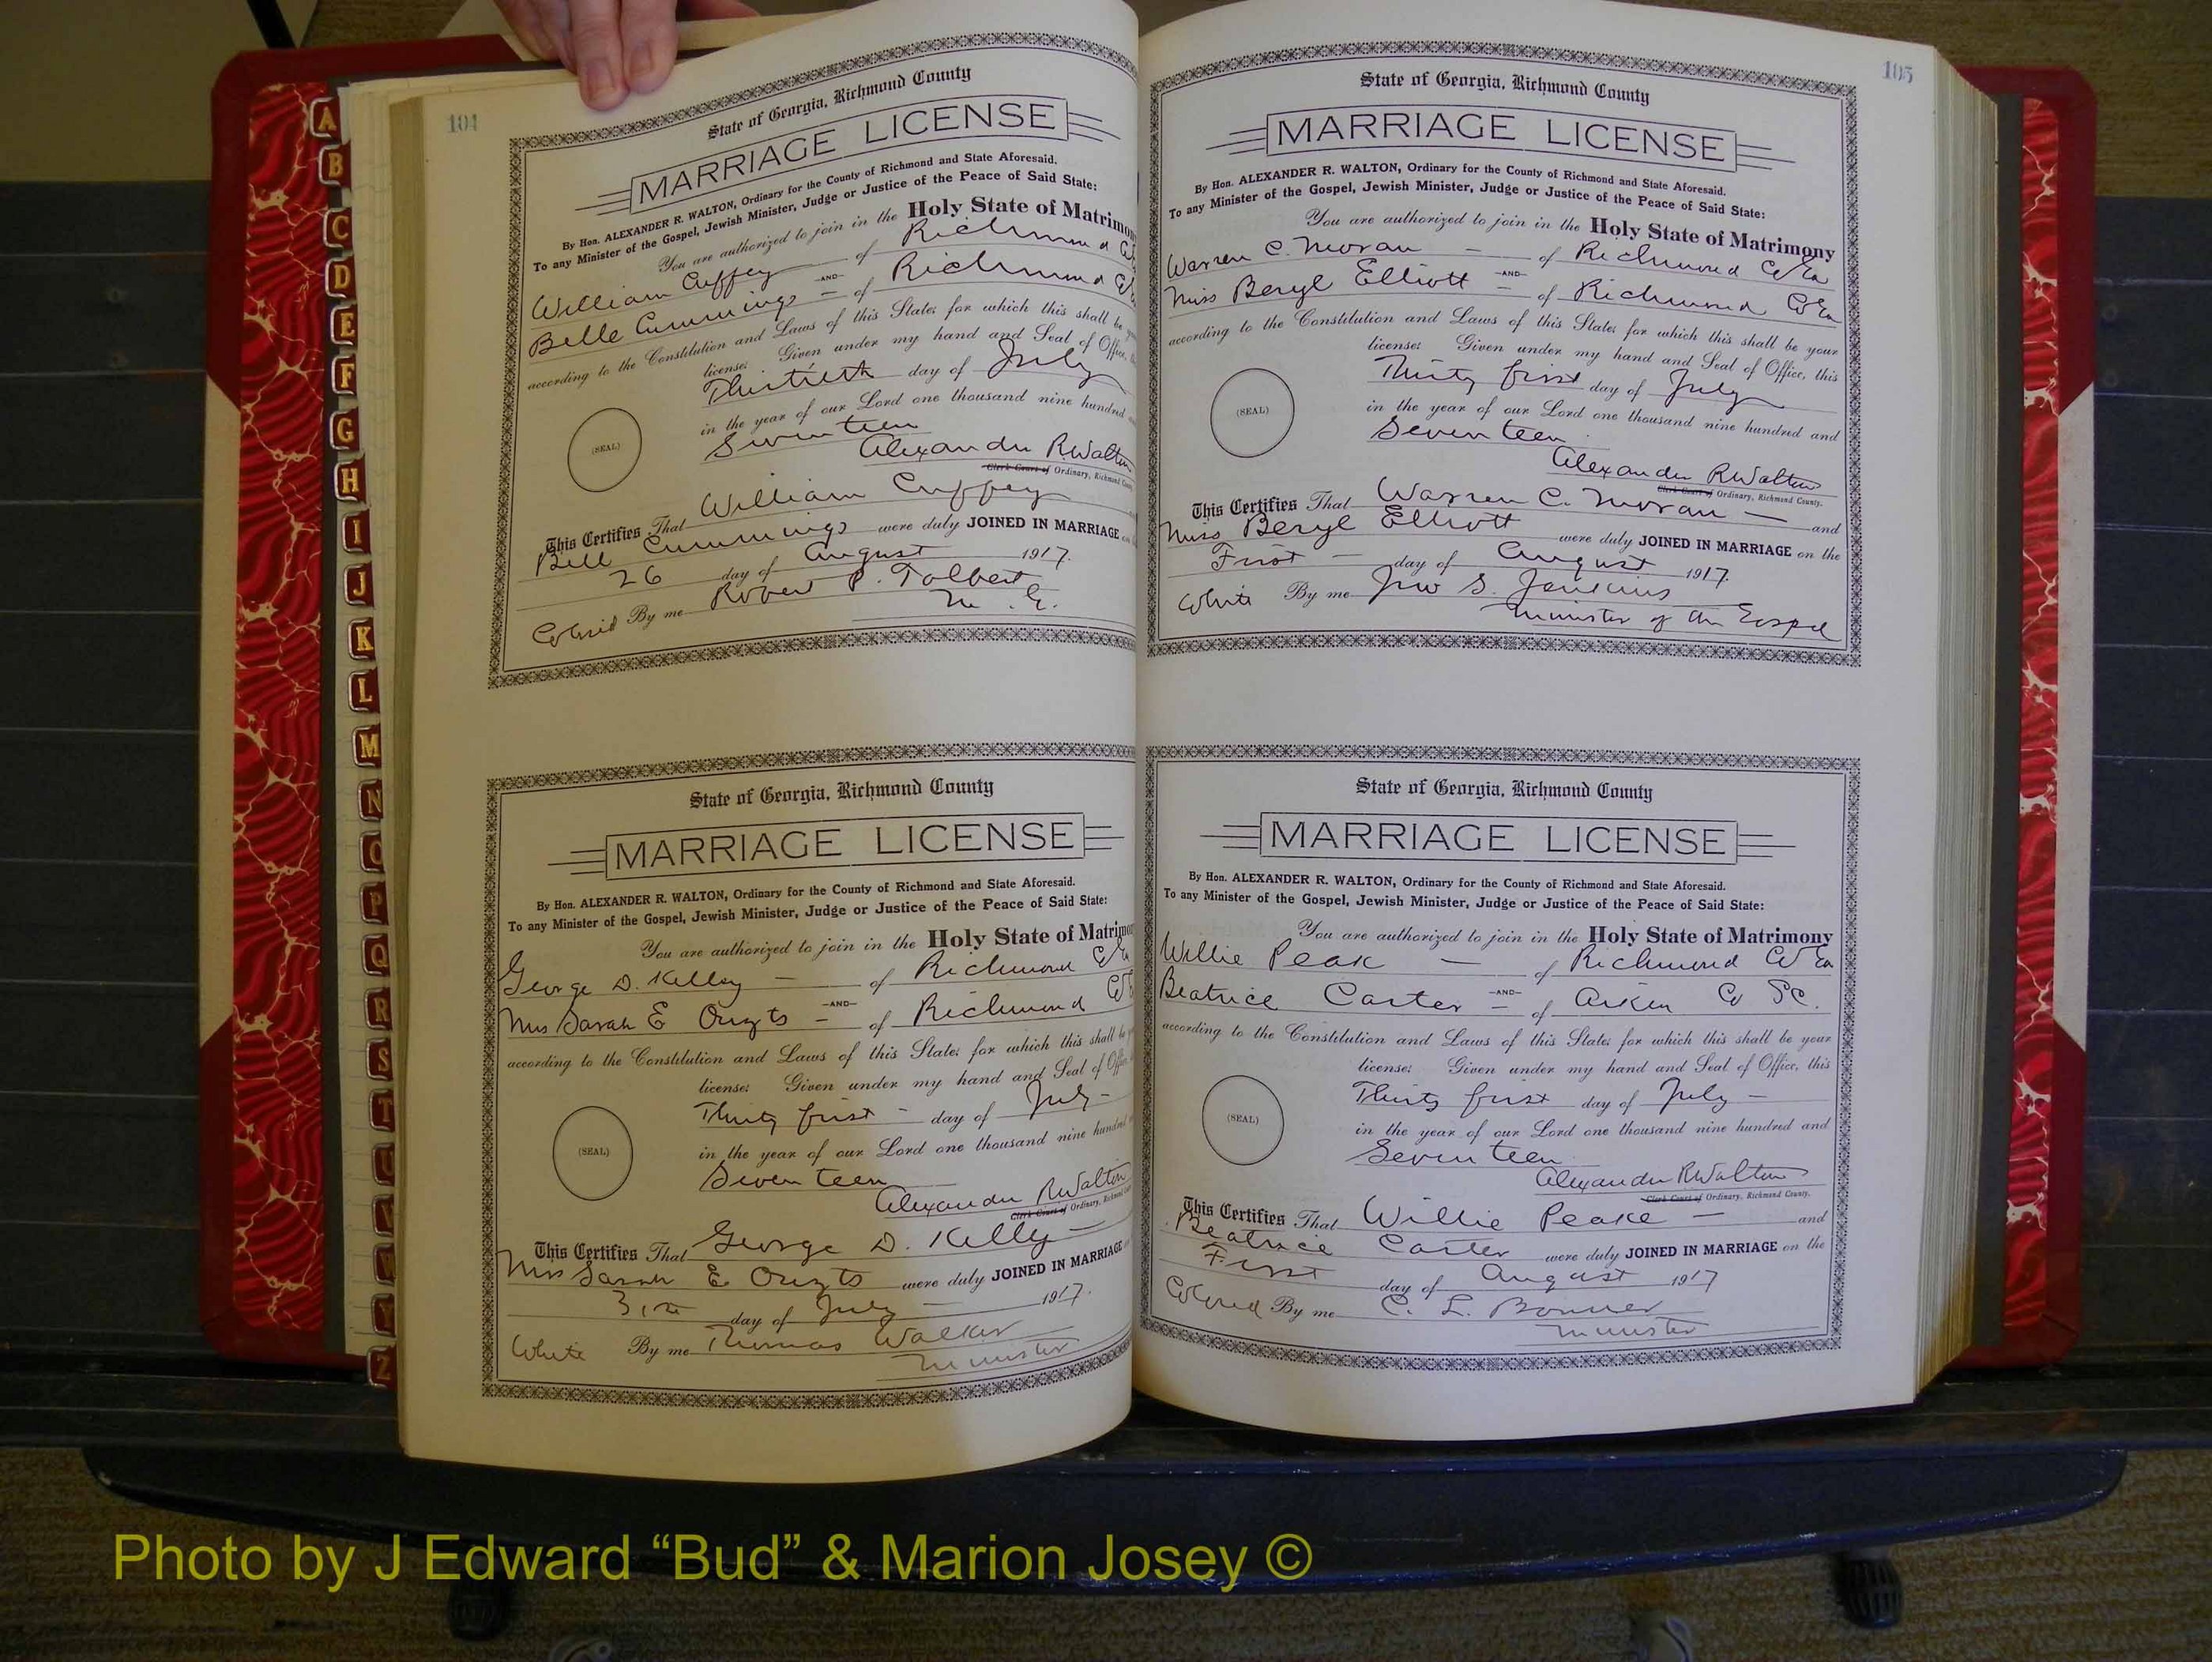 A
B
C
D
E
F
G
H
I
J
K
L
M
N
O
P
Q
R
S
T
U
V
W
Y
Z
104
State of Georgia, Richmond County
MARRIAGE LICENSE
By Hon. ALEXANDER R. WALTON, Ordinary for the County of Richmond and State Aforesaid.
To any Minister of the Gospel, Jewish Minister, Judge or Justice of the Peace of Said State:
You are authorized to join in the Holy State of Matrimony
William Cuffey of Richmond Co
AND
Belle Cummings of Richmond Co
according to the Constitution and Laws of this State; for which this shall be
license: Given under my hand and Seal of Office,
Thirtieth day of July
in the year of our Lord one thousand nine hundred
(SEAL)
Seventeen
Alexander R Walton
Clerk Court of Ordinary, Richmond County
This Certifies That William Cuffey
Bell Cummings were duly JOINED IN MARRIAGE
26 day of August 1917.
Colored By me Robert P. Tolbert
M. G.
State of Georgia, Richmond County
MARRIAGE LICENSE
By Hon. ALEXANDER R. WALTON, Ordinary for the County of Richmond and State Aforesaid.
To any Minister of the Gospel, Jewish Minister, Judge or Justice of the Peace of Said State:
You are authorized to join in the Holy State of Matrimony
George D. Kelley of Richmond Co
AND
Mrs Sarah E Ouzts of Richmond Co
according to the Constitution and Laws of this State; for which this shall be
license: Given under my hand and Seal of Office
Thirty first day of July
in the year of our Lord one thousand nine hundred
(SEAL)
Seventeen
Alexander R Walton
Clerk Court of Ordinary, Richmond
This Certifies That George D. Kelly
Mrs Sarah E Ouzts were duly JOINED IN MARRIAGE
31st day of July 1917.
White By me Thomas Walker
Minister
105
State of Georgia, Richmond County
MARRIAGE LICENSE
By Hon. ALEXANDER R. WALTON, Ordinary for the County of Richmond and State Aforesaid.
To any Minister of the Gospel, Jewish Minister, Judge or Justice of the Peace of Said State:
You are authorized to join in the Holy State of Matrimony
Warren C. Moran of Richmond Co Ga
AND
Miss Beryl Elliott of Richmond Co Ga
according to the Constitution and Laws of this State; for which this shall be your
license: Given under my hand and Seal of Office, this
Thirty first day of July
in the year of our Lord one thousand nine hundred and
(SEAL)
Seventeen
Alexander R Walton
Clerk Court of Ordinary, Richmond County.
This Certifies That Warren C. Moran and
Miss Beryl Elliott were duly JOINED IN MARRIAGE on the
First day of August 1917.
White By me Jno S. Jenkins
Minister of the Gospel
State of Georgia, Richmond County
MARRIAGE LICENSE
By Hon. ALEXANDER R. WALTON, Ordinary for the County of Richmond and State Aforesaid.
To any Minister of the Gospel, Jewish Minister, Judge or Justice of the Peace of Said State:
You are authorized to join in the Holy State of Matrimony
Willie Peak of Richmond Co Ga
AND
Beatrice Carter of Aiken Co SC.
according to the Constitution and Laws of this State; for which this shall be your
license: Given under my hand and Seal of Office, this
Thirty first day of July
in the year of our Lord one thousand nine hundred and
(SEAL)
Seventeen
Alexander R Walton
Clerk Court of Ordinary, Richmond County.
This Certifies That Willie Peake and
Beatrice Carter were duly JOINED IN MARRIAGE on the
First day of August 1917
Colored By me C. L. Bonner
Minister
Photo by J Edward “Bud” & Marion Josey ©